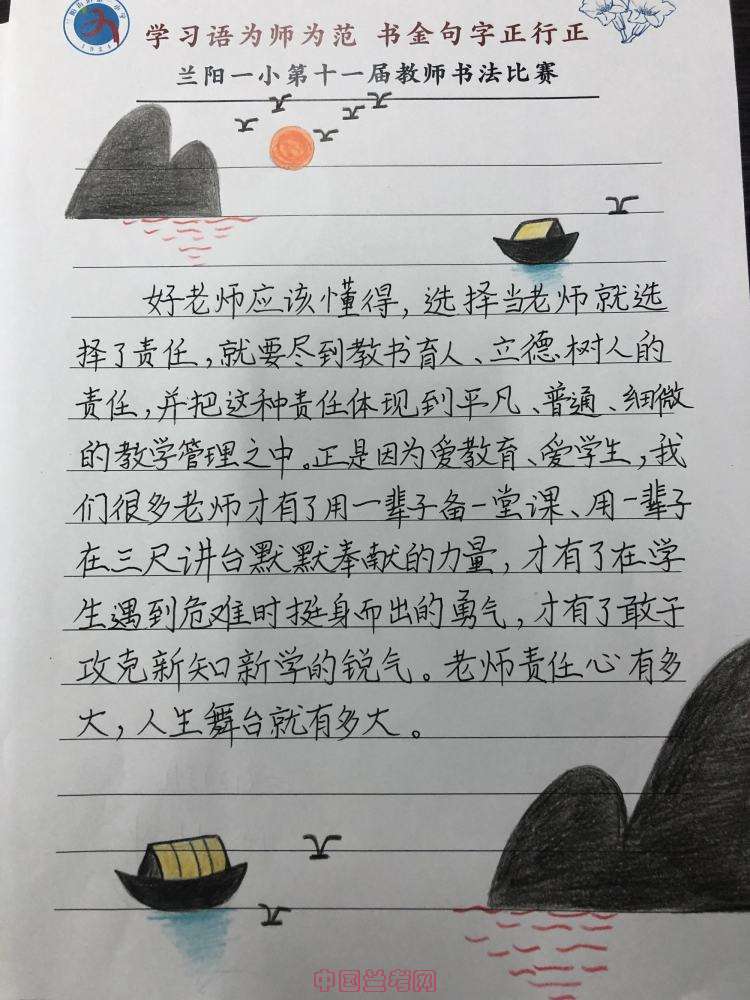 学习语为师为范 书金句字正行正
兰阳一小第十一届教师书法比赛
好老师应该懂得，选择当老师就选
择了责任，就要尽到教书育人、立德树人的
责任，并把这种责任体现到平凡、普通、细微
的教学管理之中。正是因为爱教育、爱学生，我
们很多老师才有了用一辈子备一堂课、用一辈子
在三尺讲台默默奉献的力量，才有了在学
生遇到危难时挺身而出的勇气，才有了敢于
攻克新知新学的锐气。老师责任心有多
大，人生舞台就有多大。
中国兰考网